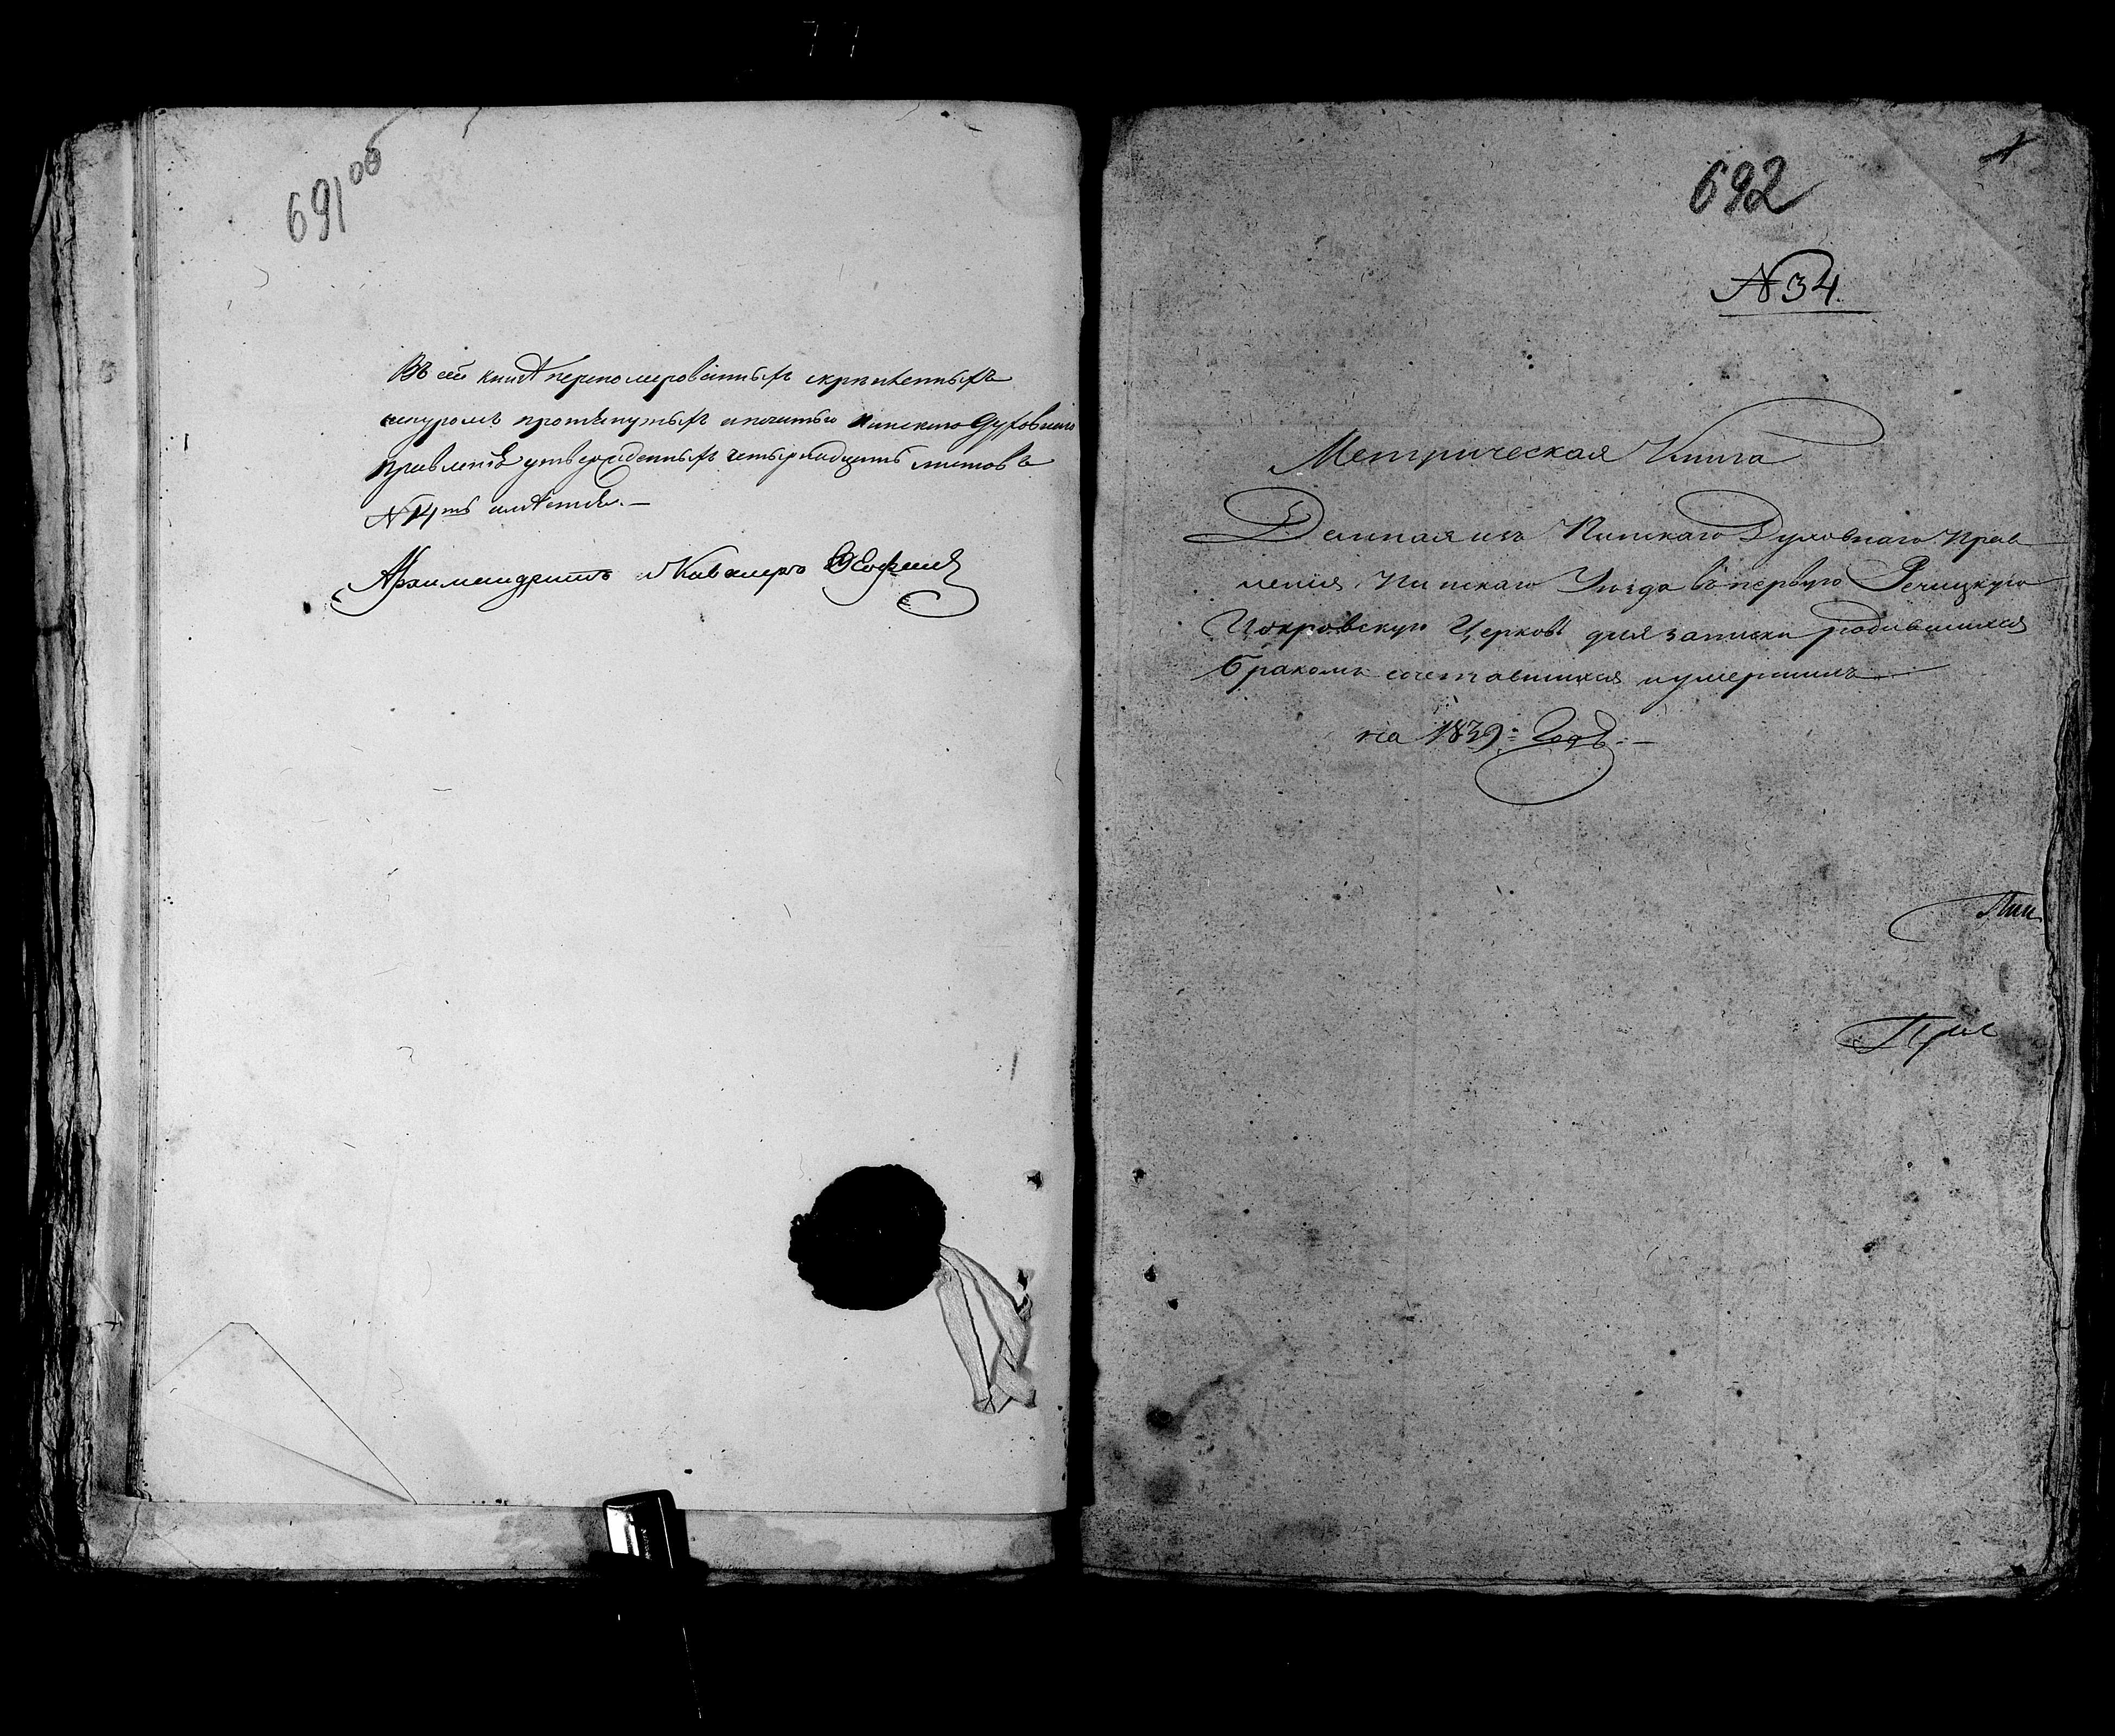 691 об
Въ сей книгѣ перномерованныхъ скрѣпленныхъ
шнуромъ протянутыхъ и печатью Пинскаго Духовнаго
Правленія утвержденныхъ четырнадцать листовъ
N 14тъ
Архимандритъ и Кавалеръ
1
692
N 34.
Метрическая Книга
Данная изъ Пинскаго Духовнаго Прав
ленія Пинскаго Уѣзда въ первую Речицкую
Покровскую Церковь для записки родившихся
бракомъ сочетавшихся и умершихъ
на 1839: Годъ.
Пин
Прав